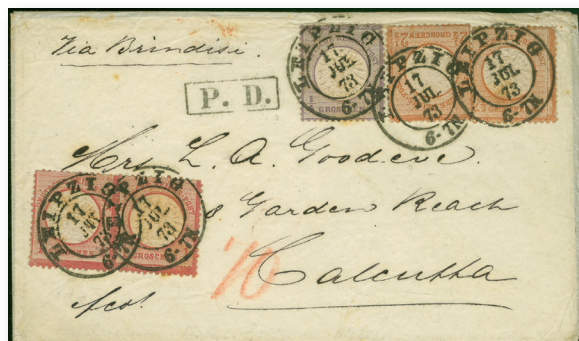 Via Brindisi.
LEIPZIG
17
JUL
73
6-7N
LEIPZIG
17
JUL
73
6-7N
LEIPZIG
17
JUL
73
6-7N
P. D.
Mrs L. A. Goodeve.
8 Garden Reach
Calcutta
LEIPZIG
17
JUL
73
6-7N
LEIPZIG
17
JUL
73
6-7N
GROSCHEN